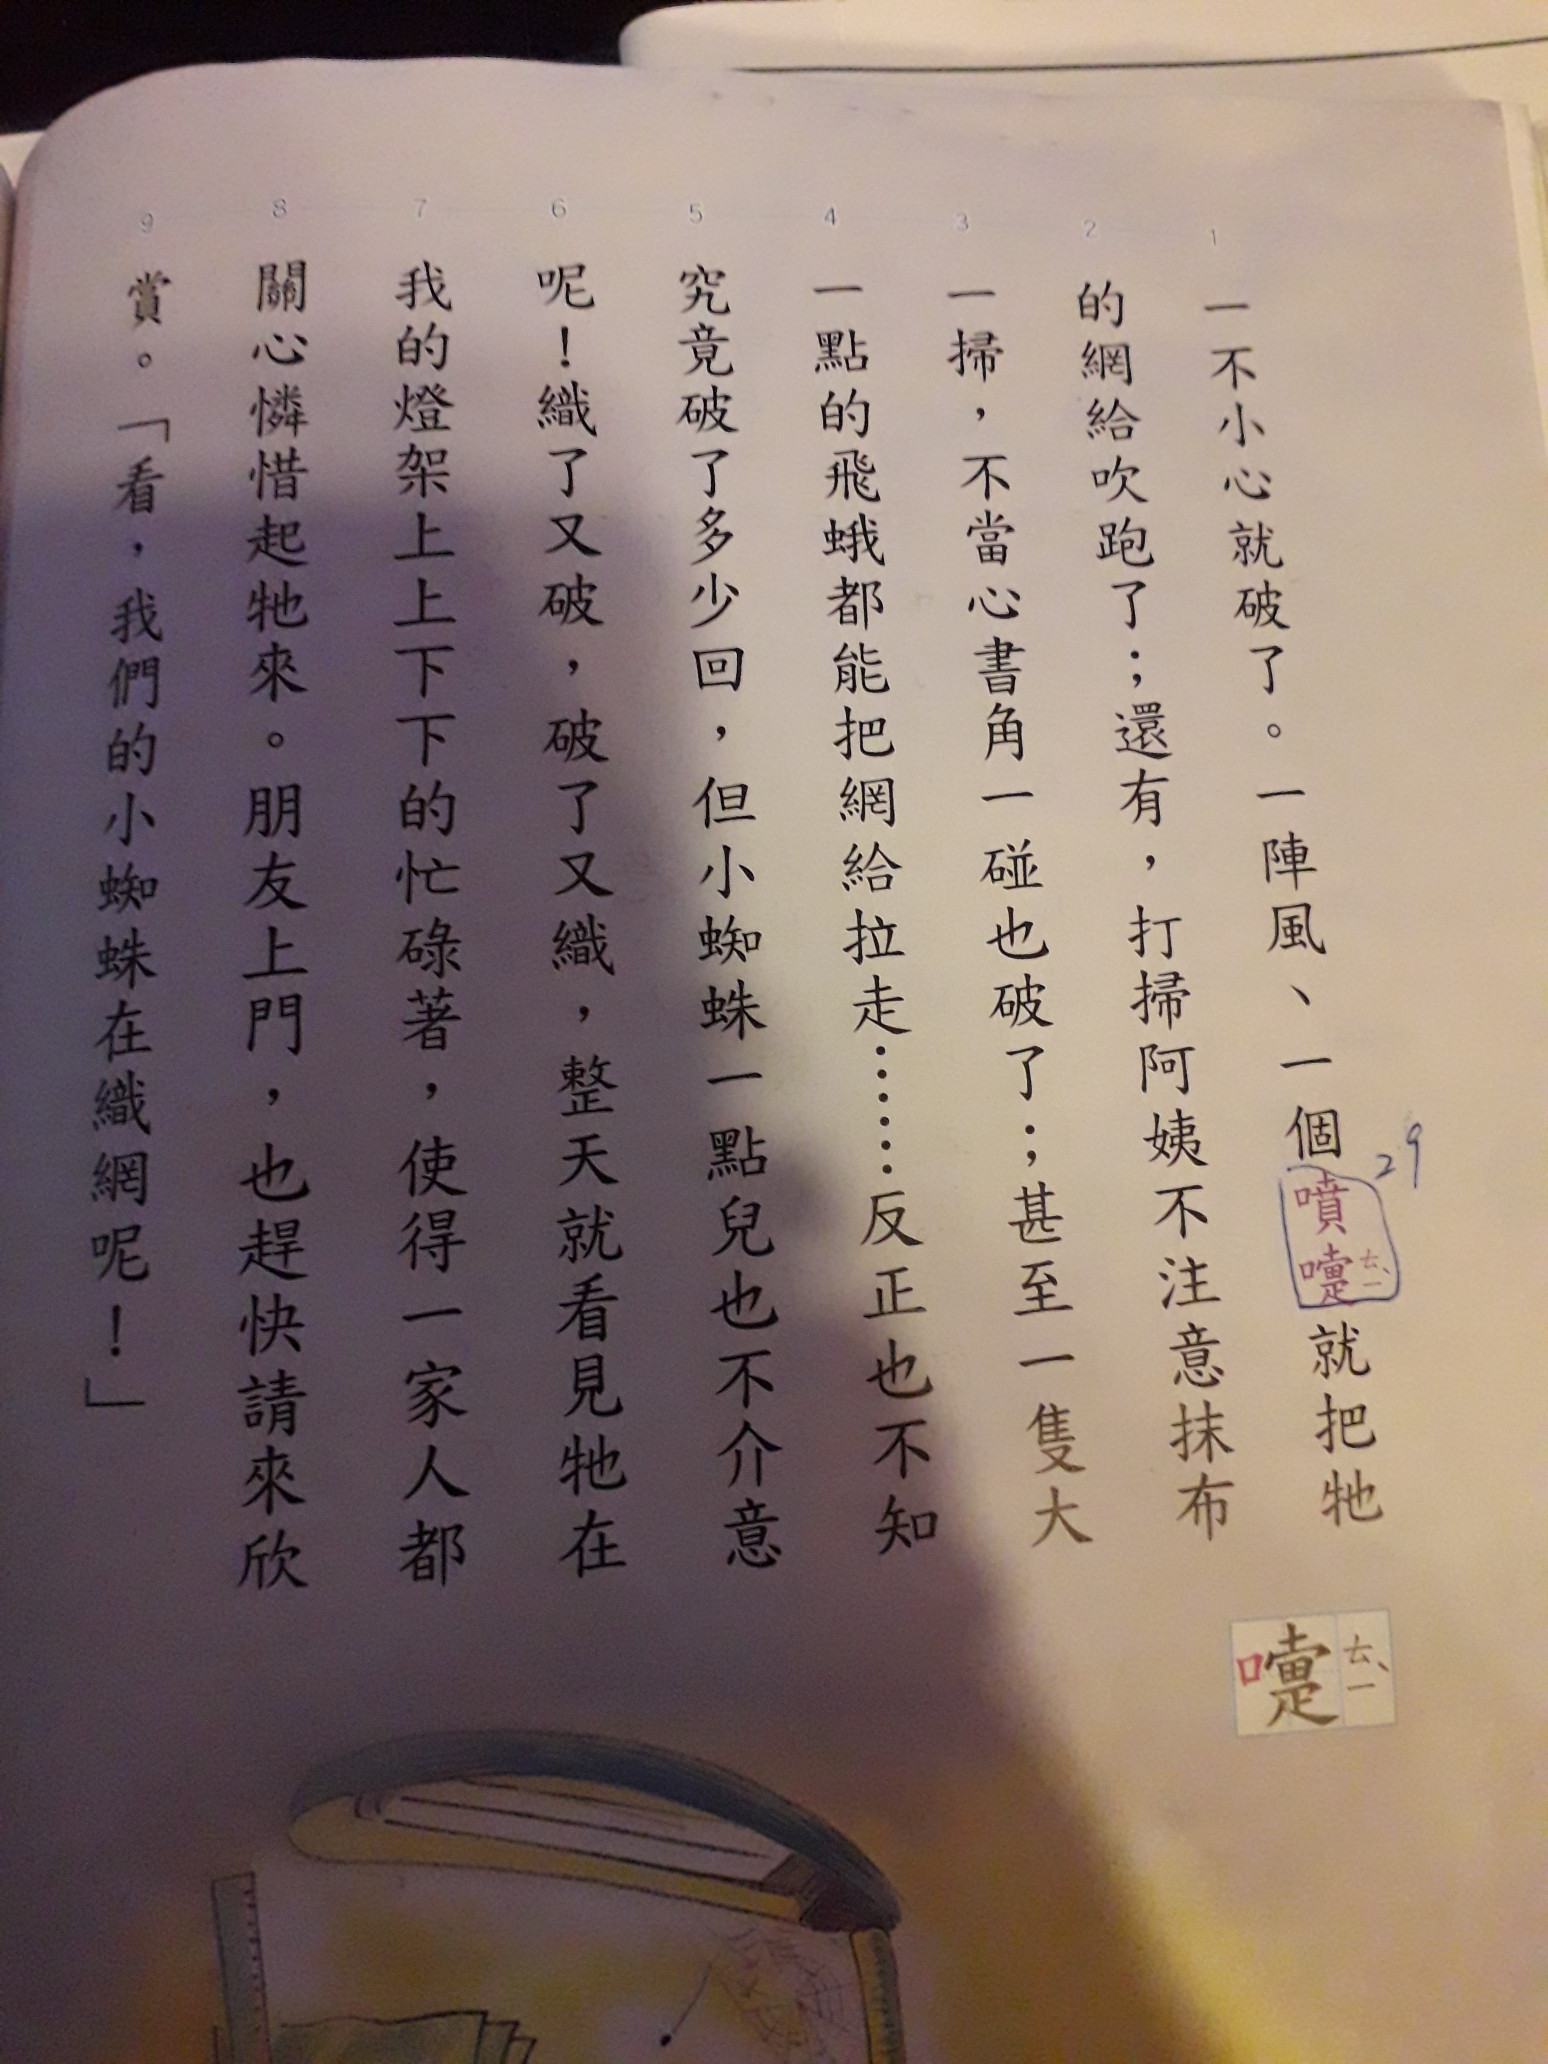 1
一不小心就破了。一陣風、一個噴嚏就把牠
ㄊㄧˋ
29
2
的網給吹跑了；還有，打掃阿姨不注意抹布
3
一掃，不當心書角一碰也破了；甚至一隻大
4
一點的飛蛾都能把網給拉走……反正也不知
5
究竟破了多少回，但小蜘蛛一點兒也不介意
6
呢！織了又破，破了又織，整天就看見牠在
7
我的燈架上上下下的忙碌著，使得一家人都
8
關心憐惜起牠來。朋友上門，也趕快請來欣
9
賞。「看，我們的小蜘蛛在織網呢！」
嚏ㄊㄧˋ